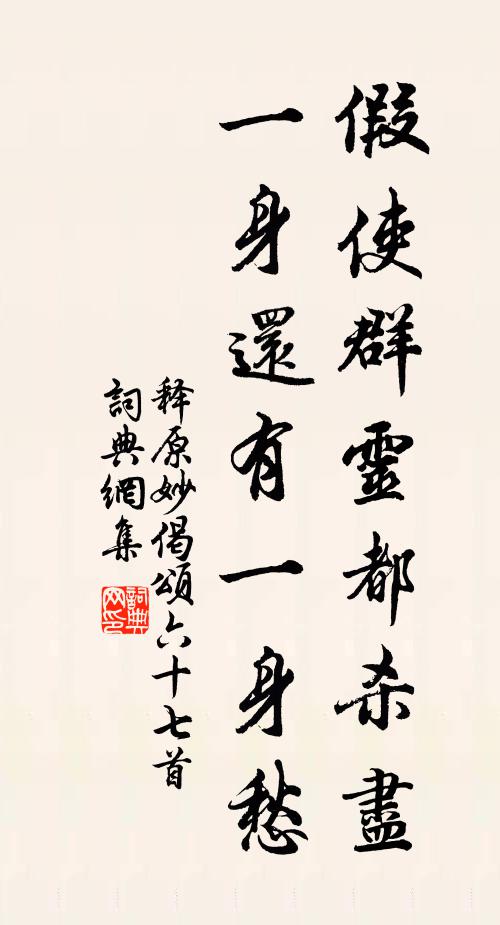 假使群靈都杀盡
一身還有一身愁
释原妙偈頌六十七首
詞典網集
詞典
网印